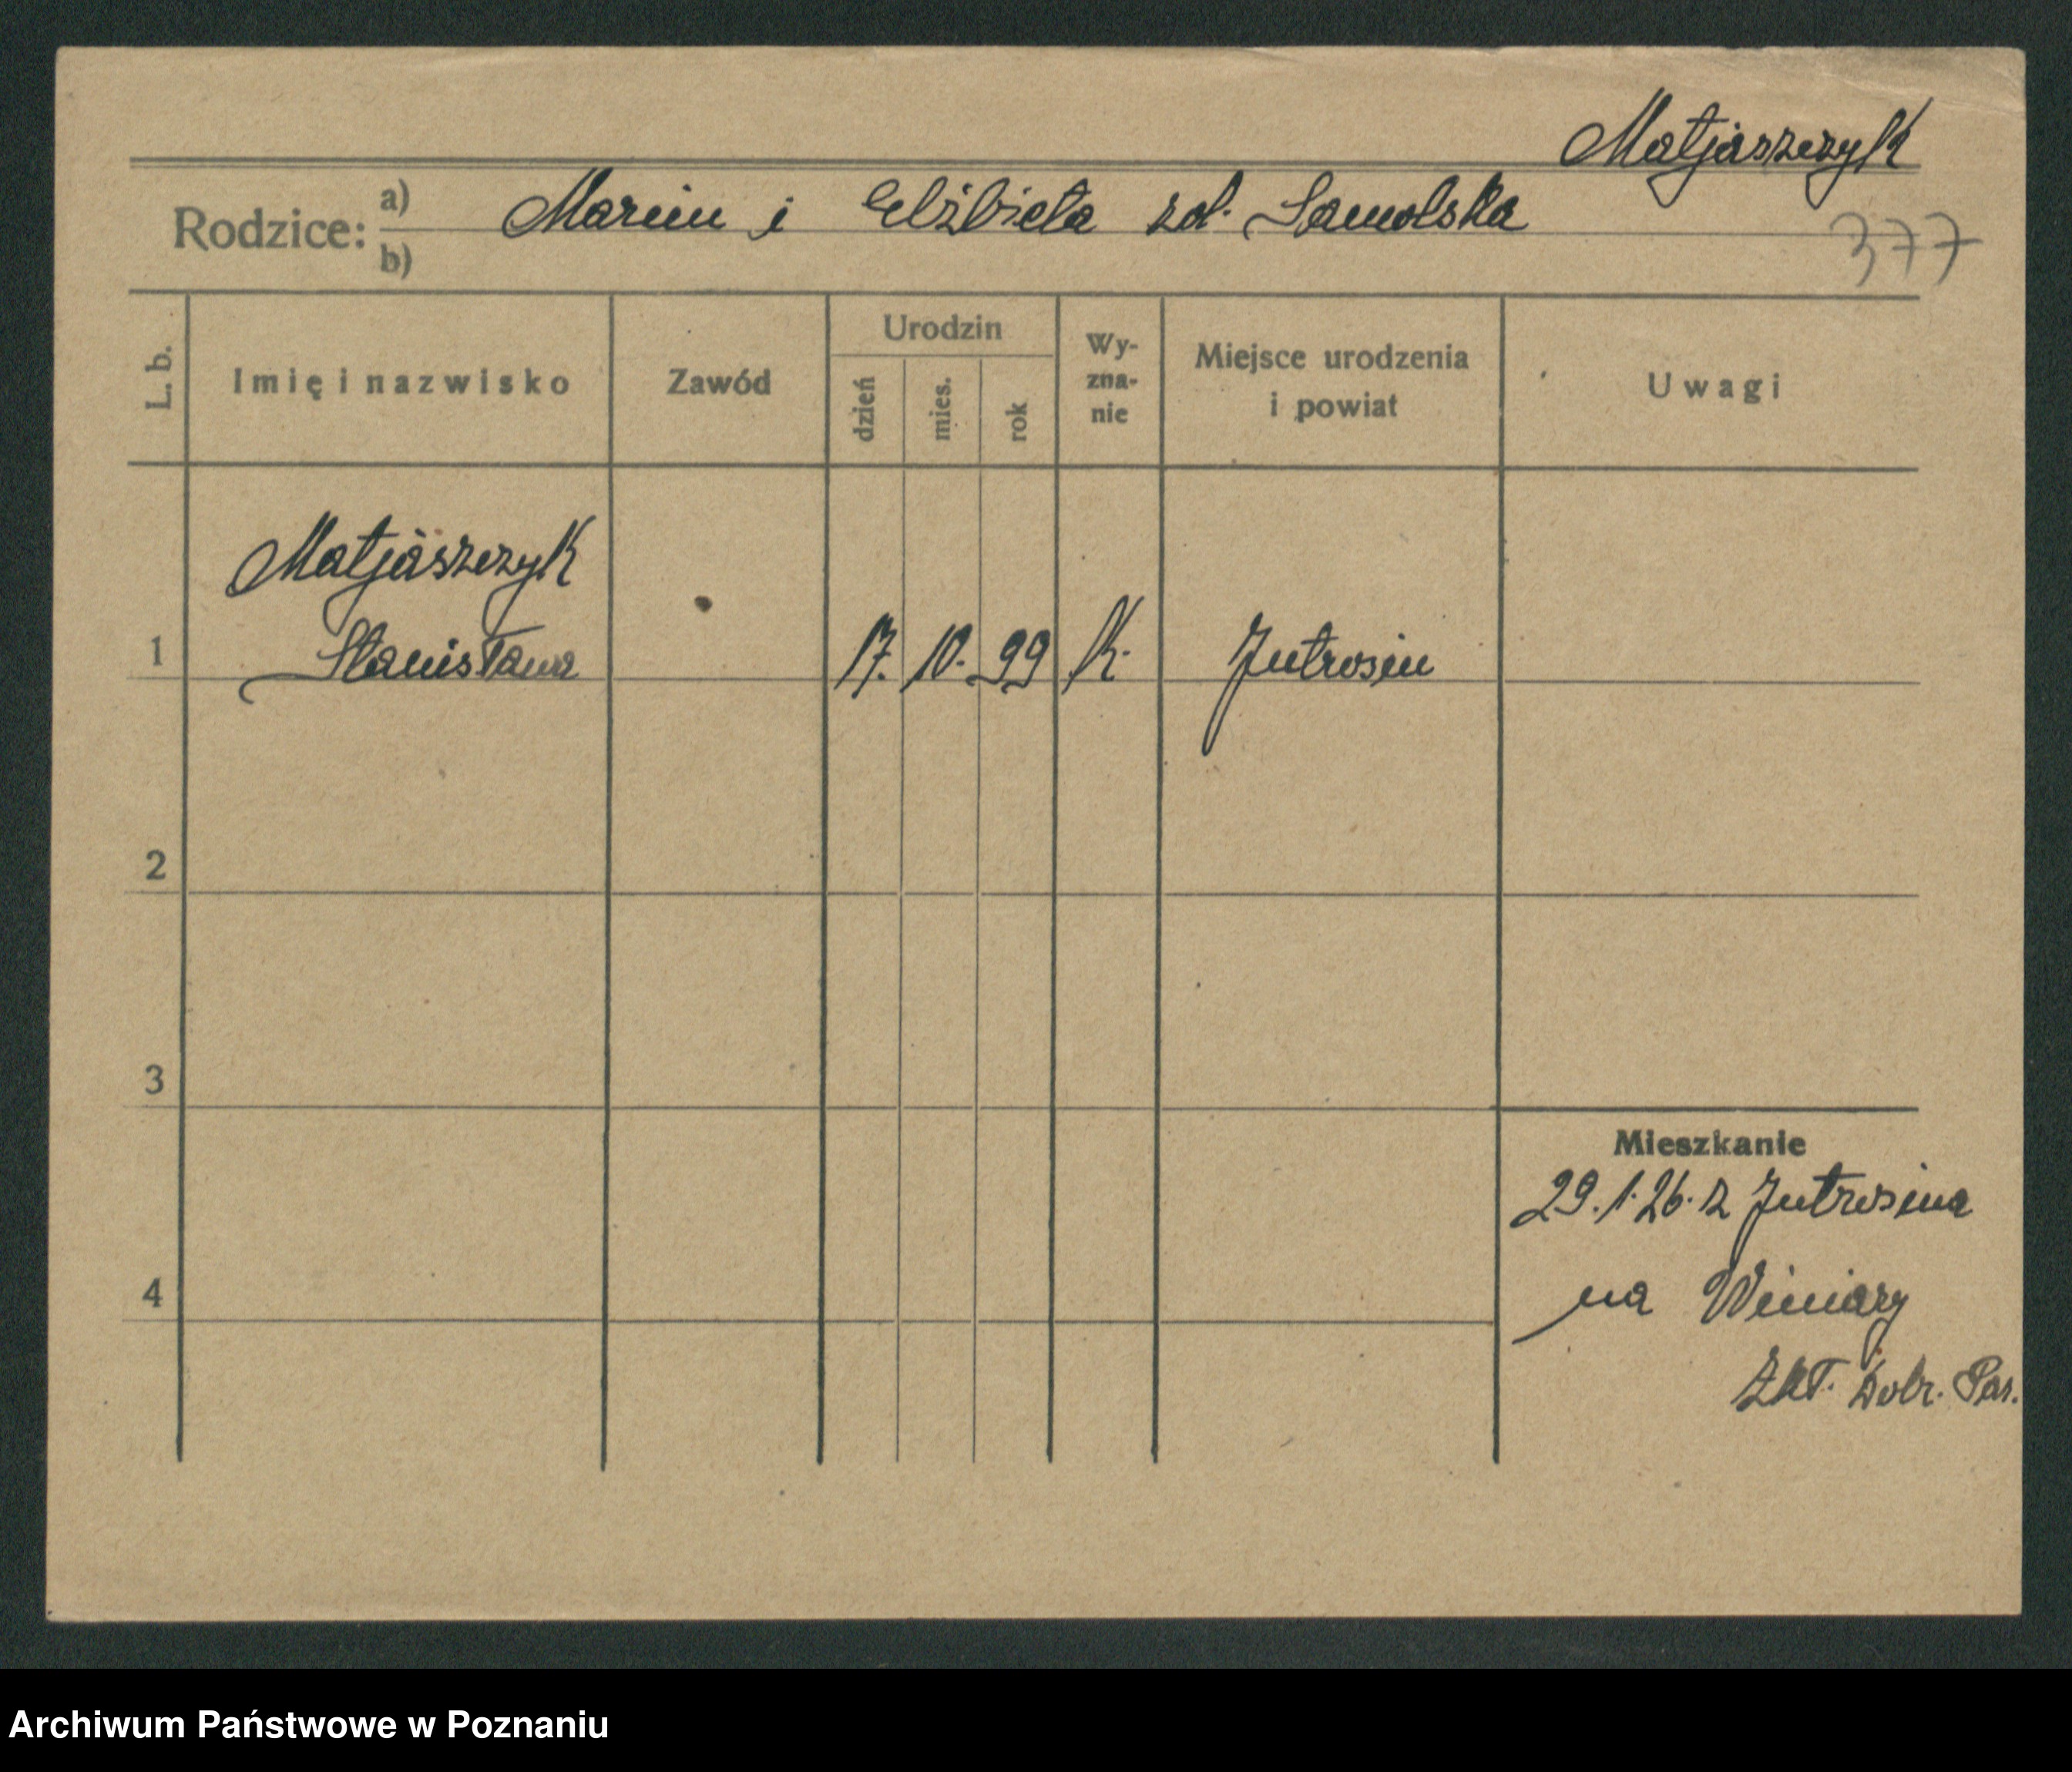 Matjaszczyk
Rodzice: a) Marcin i Elżbieta zd. Samolska
b)
377
L. b.
Imię i nazwisko
Zawód
Urodzin
dzień
mies.
rok
Wy-
zna-
nie
Miejsce urodzenia
i powiat
Uwagi
Matjaszczyk
1 Stanisława 17. 10. 99 K. Jutrosin
2
3
4
Mieszkanie
29.1.26. z Jutrosina
na Winiary
Zkł. Dobr. Pas.
Archiwum Państwowe w Poznaniu